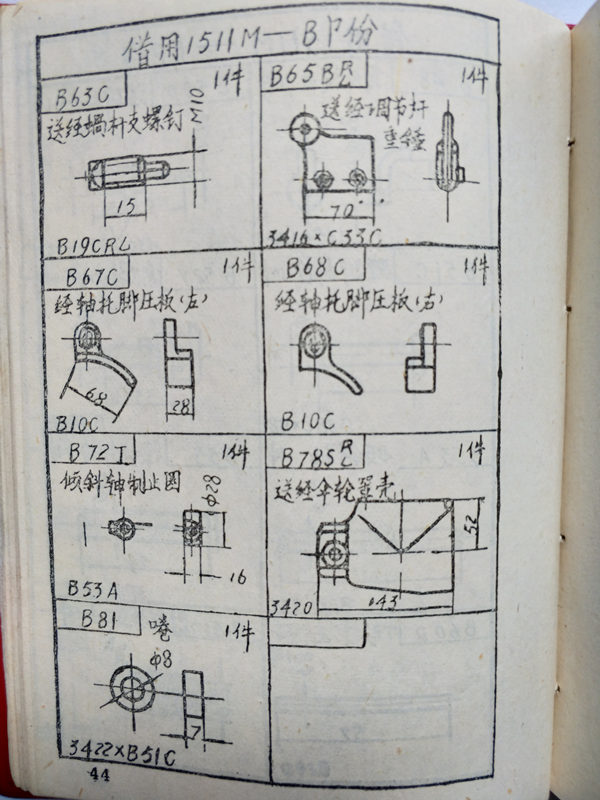 借用1511M—B部份
B63C
1件
送经蝸杆支螺钉
M10
15
B19CRL
B65B R/L
1件
送经调节杆
重锤
70
3416×C33C
B67C
1件
经轴托脚压板(左)
68
28
B10C
B68C
1件
经轴托脚压板(右)
B10C
B72I
1件
倾斜轴制止圆
φ28
16
B53A
B78S R/L
1件
送经伞轮罩壳
52
143
3420
B81
1件
φ8
7
3422×B51C
44